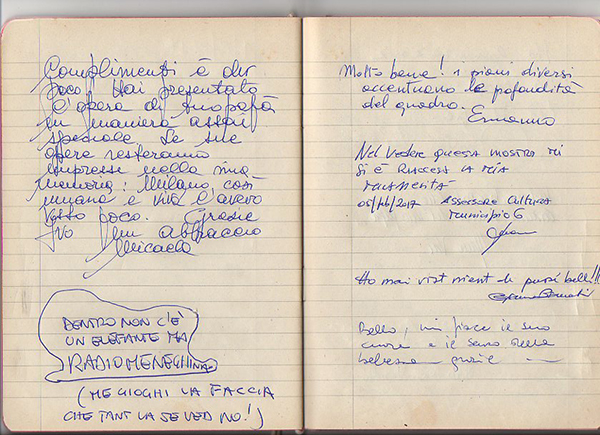 Complimenti è dir
poco. Hai presentato
l'opera di tuo papà
in maniera assai
speciale. Le sue
opere resteranno
impresse nella mia
memoria: Milano così
umana e viva l'avevo
vista poco. Grazie
Un abbraccio
Micaela
DENTRO NON C'È
UN ELEFANTE MA
RADIOMENEGHINA
(ME GIOGHI LA FACCIA
CHE TANT LA SE VED NO!)
Molto bene! i piani diversi
accentuano le profondità
del quadro.
Ermanno
NEL VEDERE QUESTA MOSTRA MI
SI È RIACCESA LA MIA
05/feb/2017 ASSESSORE CULTURA
MUNICIPIO 6
Ho mai vist nient de pussé bell!!!
Bello, mi piace il suo
cuore e il senso della
bellezza grazie